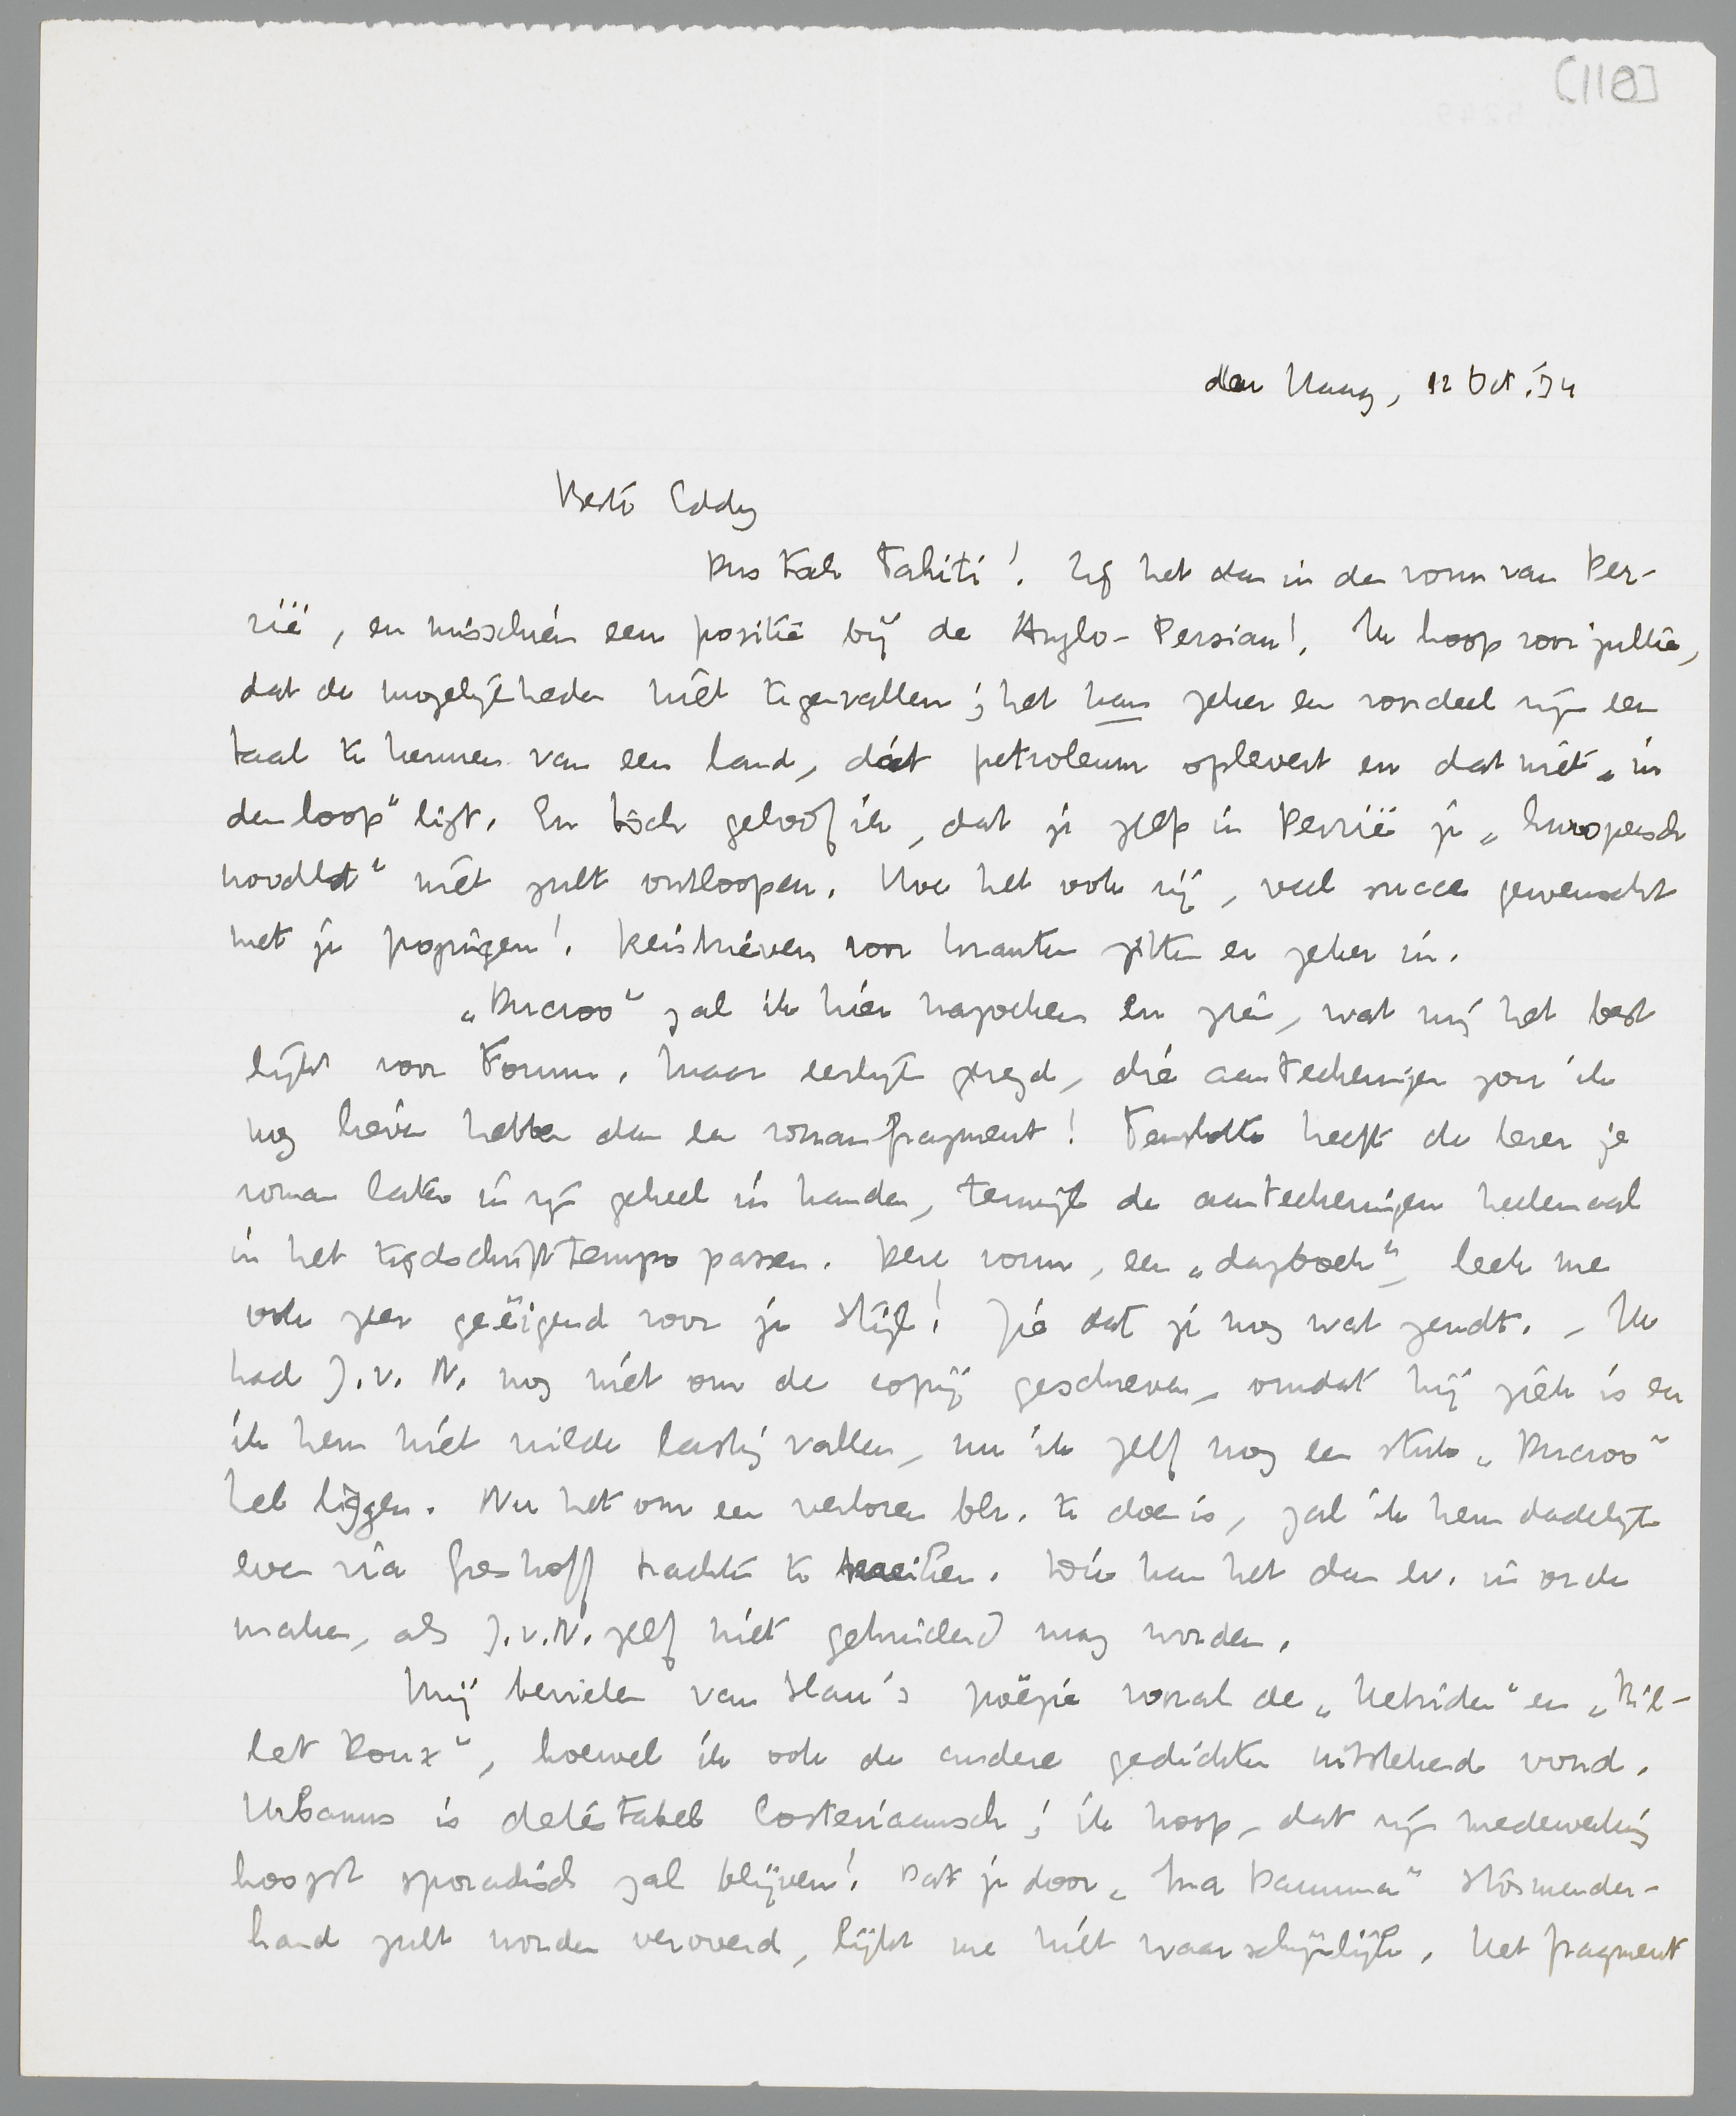 [118]
den Haag, 12 Oct. '34
Beste Eddy
Dus toch Tahiti! Zij het dan in den vorm van Per-
zië, en misschien een positie bij de Anglo-Persian! Ik hoop voor jullie,
dat de mogelijkheden niet tegenvallen; het kan zeker een voordeel zijn een
taal te kennen van een land, dát petroleum oplevert en dat niet „in
den loop" ligt. En tóch geloof ik, dat je zelfs in Perzië je „Europeesch
noodlot" niet zult ontloopen. Hoe het ook zij, veel succes gewenscht
met je pogingen! Reisbrieven voor kranten zitten er zeker in.
„Ducroo" zal ik hier nazoeken en zien, wat mij het best
lijkt voor Forum. Maar eerlijk gezegd, die aanteekeningen zou ik
nog liever hebben dan een romanfragment! Tenslotte heeft de lezer je
roman later in zijn geheel in handen, terwijl de aanteekeningen heelemaal
in het tijdschrifttempo passen. Deze vorm, een „dagboek", leek me
ook zeer geëigend voor je stijl! Zie dat je nog wat zendt. – Ik
had J.v.N. nog niet om de copij geschreven, omdat hij ziek is en
ik hem niet wilde lastig vallen, nu ik zelf nog een stuk „Ducroo"
heb liggen. Nu het om een verloren blz. te doen is, zal ik hem dadelijk
even via Greshoff trachten te bereiken. Die kan het dan ev. in orde
maken, als J.v.N. zelf niet gehinderd mag worden.
Mij bevielen van Slau's poëzie vooral de „Hetride" en „Bil-
let Doux", hoewel ik ook de andere gedichten uitstekend vond.
Urbanus is detéstabel Costeriaansch; ik hoop, dat zijn medewerking
hoogst sporadisch zal blijven! Dat je door „Ma Damma" stormender-
hand zult worden veroverd, lijkt me niet waarschijnlijk. Het fragment